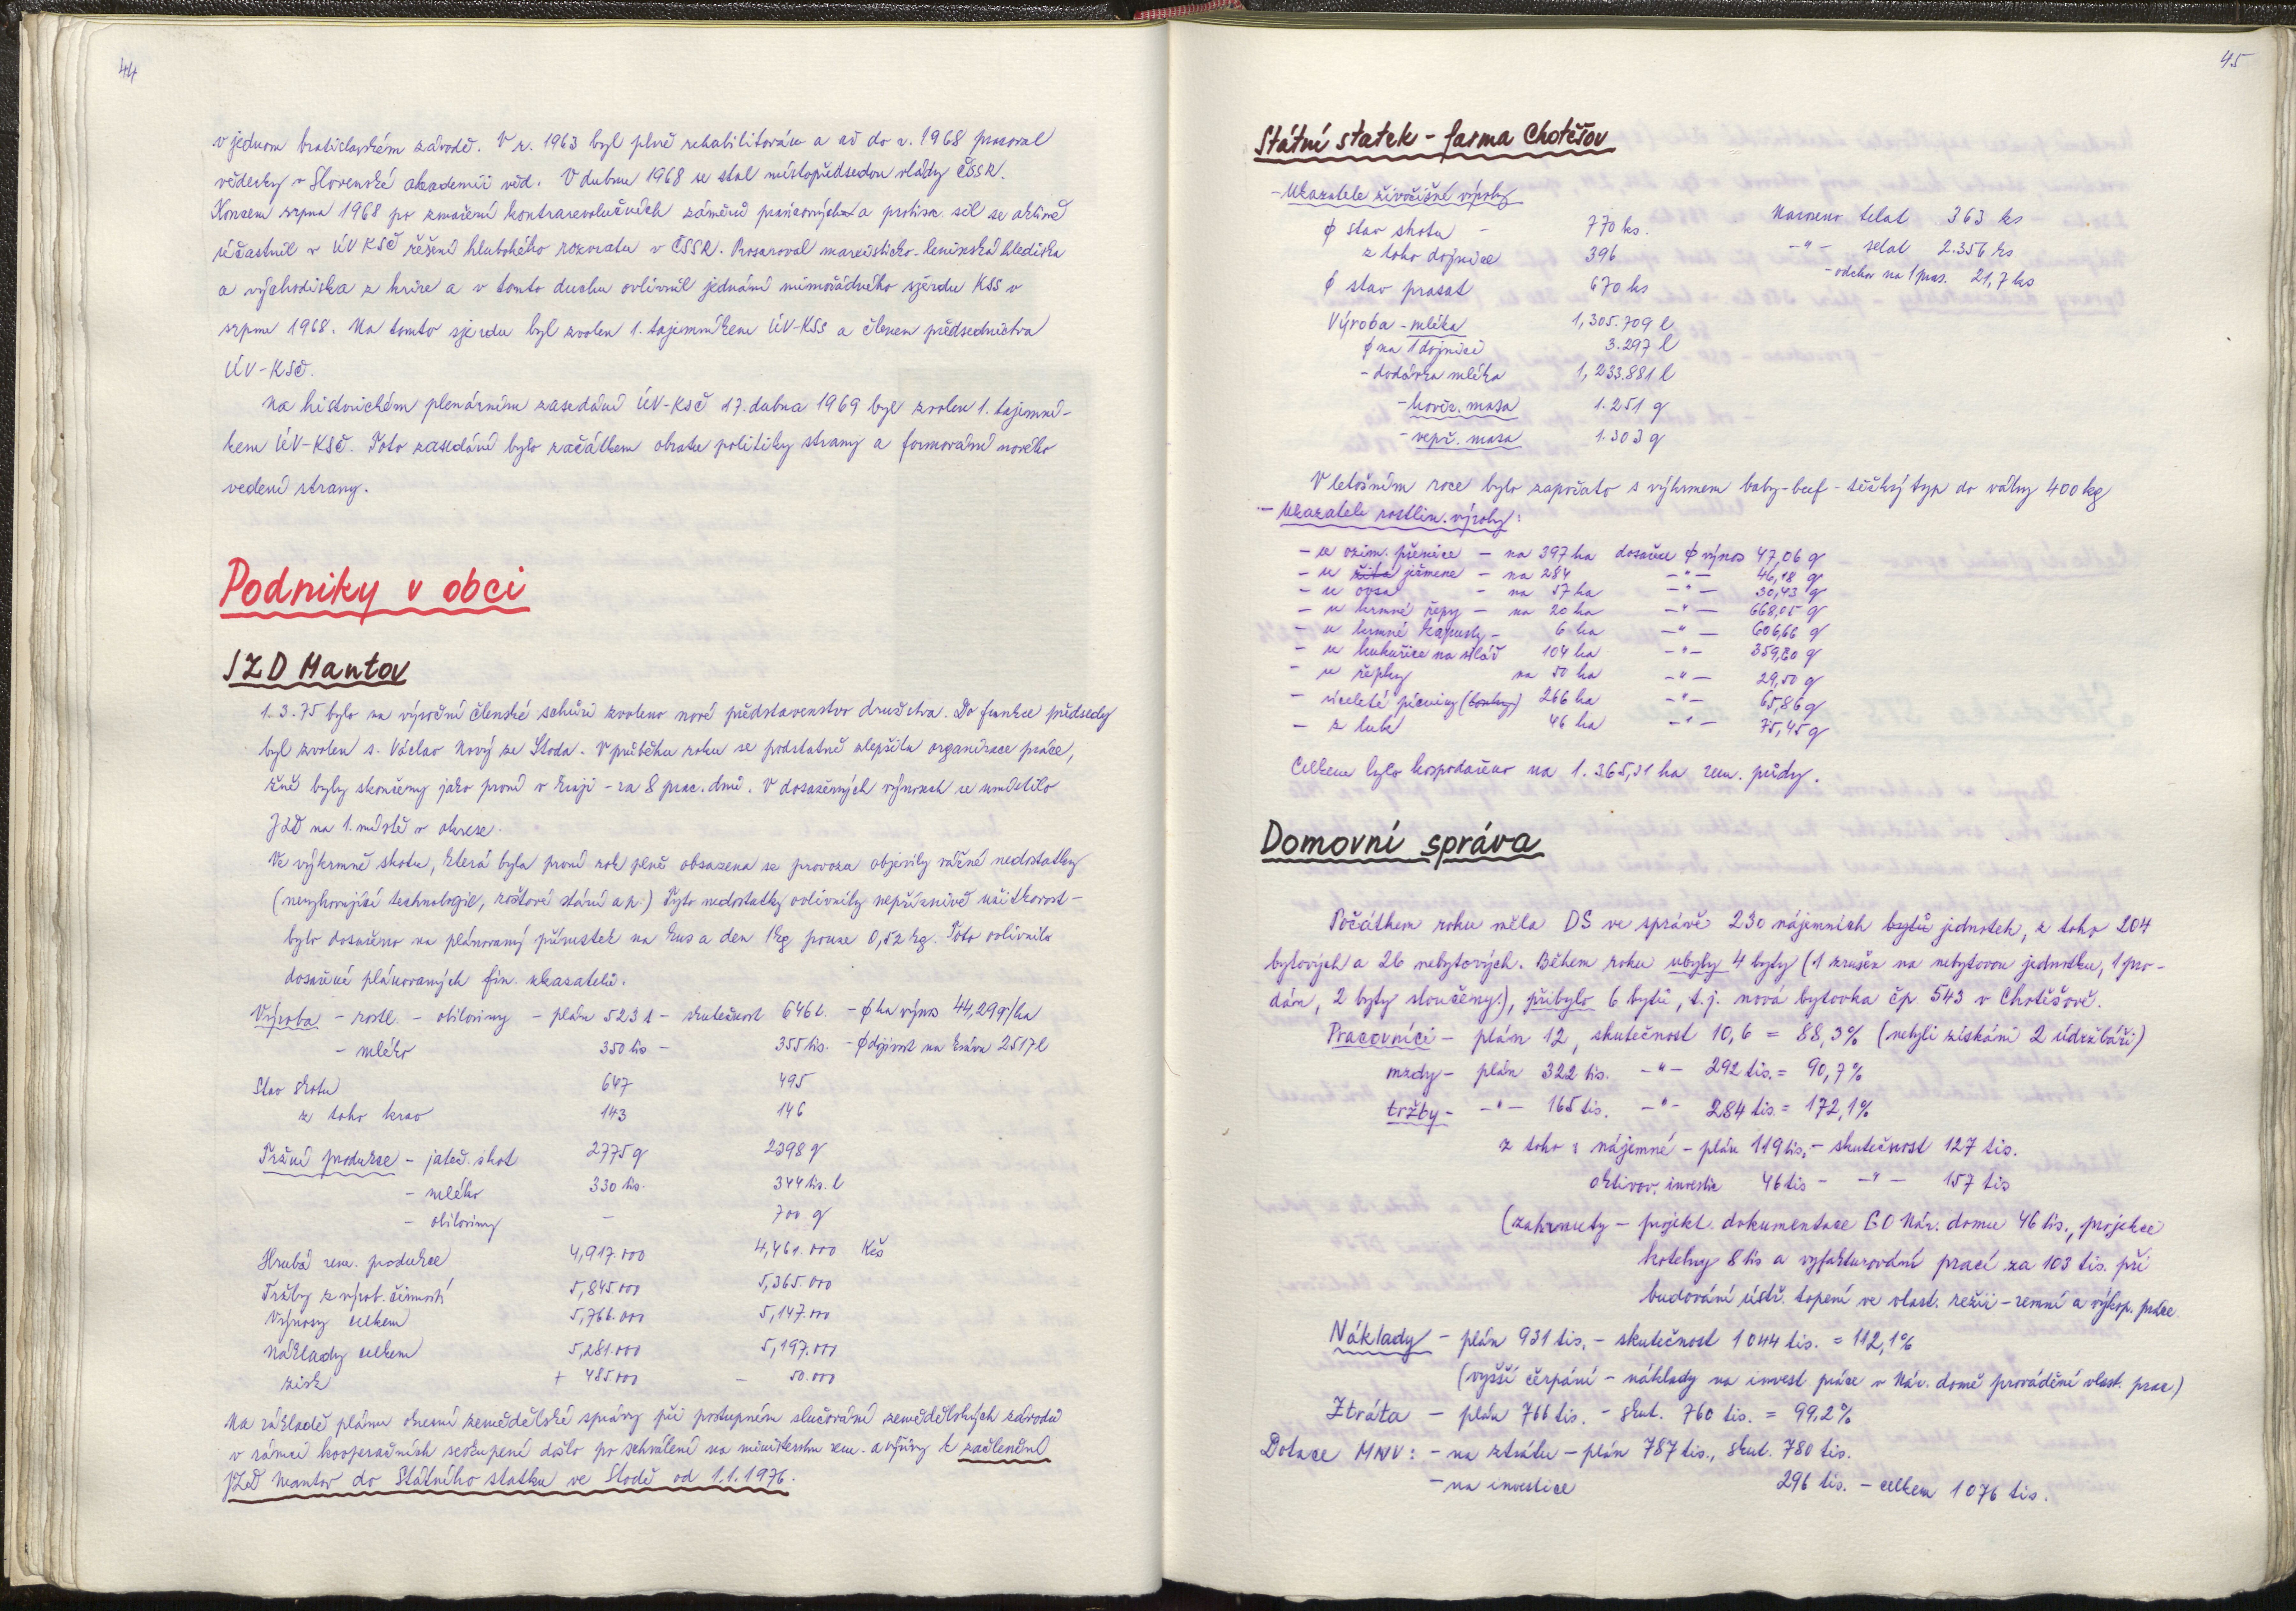 44
v jednom bratislavském závodě. V r. 1963 byl plně rehabilitován a až do r. 1968 pracoval
vědecky v Slovenské akademii věd. V dubnu 1968 se stal místopředsedou vlády ČSSR.
Koncem srpna 1968 po zmaření kontrarevolučních záměrů pravicových a protisoc. sil se aktivně
účastnil v ÚV KSČ řešení hlubokého rozvratu v ČSSR. Prosazoval marxisticko-leninská hlediska
a východiska z krize a v tomto duchu ovlivnil jednání mimořádného sjezdu KSS v
srpnu 1968. Na tomto sjezdu byl zvolen 1. tajemníkem ÚV-KSS a členem předsednictva
ÚV-KSČ.
Na historickém plenárním zasedání ÚV-KSČ 17. dubna 1969 byl zvolen 1. tajemní-
kem ÚV-KSČ. Toto zasedání bylo začátkem obratu politiky strany a formování nového
vedení strany.
Podniky v obci
JZD Mantov
1.3.75 bylo na výroční členské schůzi zvoleno nové představenstvo družstva. Do funkce předsedy
byl zvolen s. Václav Nový ze Stoda. V průběhu roku se podstatně zlepšila organizace práce,
žně byly skončeny jako první v kraji - za 8 prac. dnů. V dosažených výnosech se umístilo
JZD na 1. místě v okrese.
Ve výkrmně skotu, která byla první rok plně obsazena se provozu objevily vážné nedostatky
(nevyhovující technologie, roštové stání ap.) Tyto nedostatky ovlivnily nepříznivě užitkovost -
bylo dosaženo na plánovaný přírustek na kus a den 1kg pouze 0,52 kg. Toto ovlivnilo
dosažení plánovaných fin. ukazatelů.
Výroba - rostl. - obiloviny - plán 523 t - skutečnost 646 t. - ϕ ha výnos 44,29 q/ha
- mléko 350 tis - 355 tis. - ϕ dojivost na krávu 2517 l
Stav skotu 647 495
z toho krav 143 146
Tržní produkce - jateč. skot 2775 q 2398 q
- mléko 330 tis. 344 tis. l
- obiloviny - 700 q
Hrubá zem. produkce 4,917.000 4,461.000 Kčs
Tržby z výrob. činnosti 5,845.000 5,365.000
Výnosy celkem 5,766.000 5,147.000
Náklady celkem 5,281.000 5,197.000
zisk + 485.000 - 50.000
Na základě plánu okresní zemědělské správy při postupném slučování zemědělských závodů
v rámci kooperačních seskupení došlo po schválení na ministerstvu zem. a výživy k začlenění
JZD Mantov do Státního statku ve Stodě od 1.1.1976.
45
Státní statek - farma Chotěšov
- Ukazatele živočišné výroby
ϕ stav skotu - 770 ks. Narozeno telat 363 ks
z toho dojnice 396 -"- selat 2.356 ks
ϕ stav prasat 670 ks - odchov na 1 pras. 21,7 ks
Výroba - mléka 1,305.709 l
ϕ na 1 dojnici 3.297 l
- dodávka mléka 1,233.881 l
- hověz. masa 1.251 q
- vepř. masa 1.303 q
V letošním roce bylo započato s výkrmem baby-beef - těžký typ do váhy 400 kg
- Ukazatele rostlin. výroby:
- u ozim. pšenice - na 397 ha dosažen ϕ výnos 47,06 q
- u žita ječmene - na 284 -"- 46,18 q
- u ovsa - na 57 ha -"- 30,43 q
- u krmné řepy - na 20 ha -"- 668,05 q
- u krmné kapusty - 6 ha -"- 606,66 q
- u kukuřice na siláž 104 ha -"- 359,80 q
- u řepky na 50 ha -"- 29,50 q
- víceleté pícniny 266 ha -"- 65,86 q
- z luk 46 ha -"- 75,45 q
Celkem bylo hospodařeno na 1.365,31 ha zem. půdy.
Domovní správa
Počátkem roku měla DS ve správě 230 nájemních bytů jednotek, z toho 204
bytových a 26 nebytových. Během roku ubyly 4 byty (1 zrušen na nebytovou jednotku, 1 pro-
dán, 2 byty sloučeny.), přibylo 6 bytů, t.j. nová bytovka čp. 543 v Chotěšově.
Pracovníci - plán 12, skutečnost 10,6 = 88,3% (nebyli získáni 2 údržbáři)
mzdy - plán 322 tis. -"- 292 tis. = 90,7%
tržby - -"- 165 tis. -"- 284 tis. = 172,1%
z toho : nájemné - plán 119 tis. - skutečnost 127 tis.
aktivov. investic 46 tis - -"- 157 tis
(zahrnuty - projekt. dokumentace GO Nár. domu 46 tis., projekce
kotelny 8 tis a vyfakturování prací za 103 tis. při
budování ústř. topení ve vlast. režii - zemní a výkop. práce
Náklady - plán 931 tis. - skutečnost 1044 tis. = 112,1%
(vyšší čerpání - náklady na invest. práce v Nár. domě prováděné vlast. prac)
Ztráta - plán 766 tis. - skut. 760 tis. = 99,2%
Dotace MNV: - na ztrátu - plán 787 tis., skut. 780 tis.
- na investice 296 tis. - celkem 1076 tis.